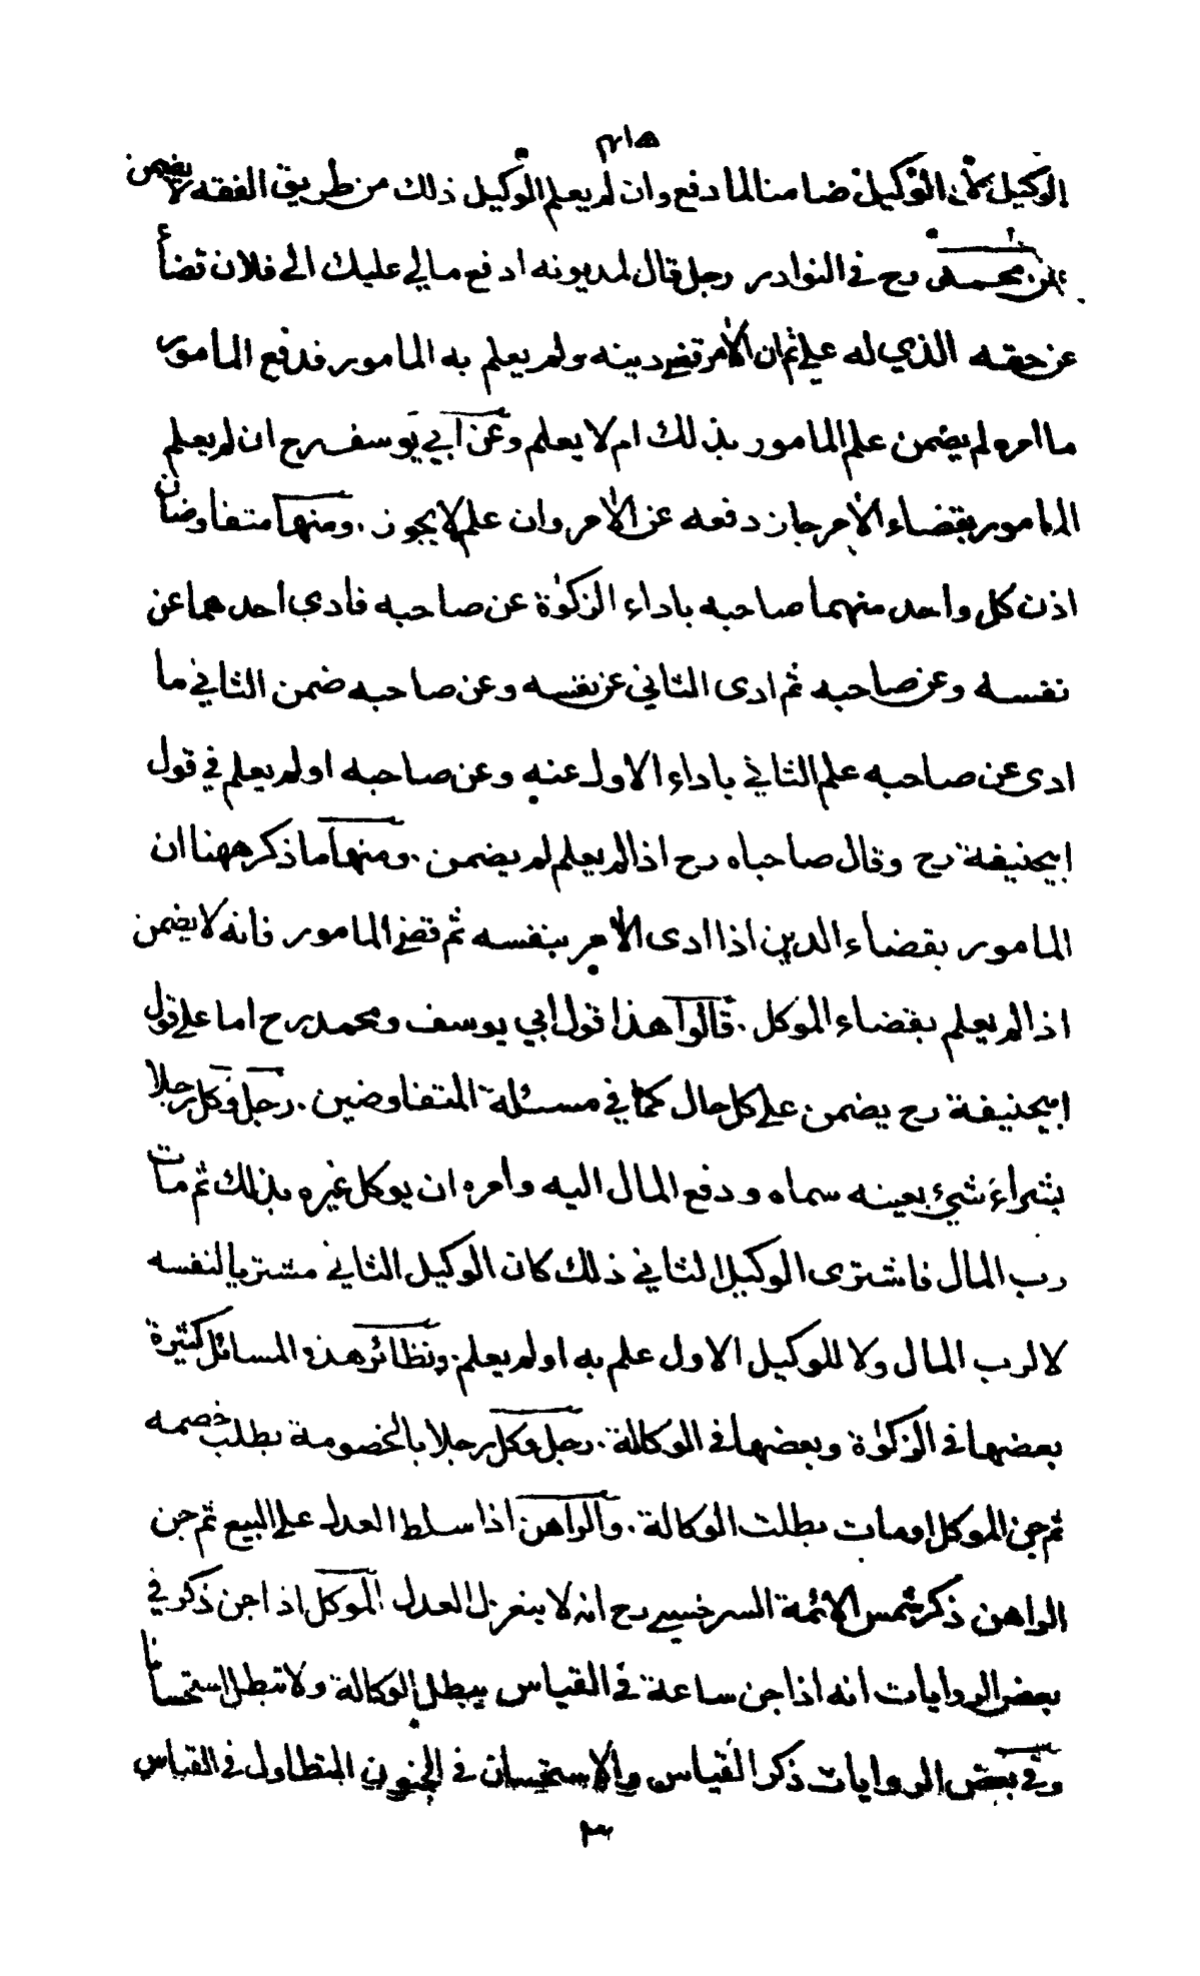 الوكيل لان الوكيل ضامنا لما دفع وان لم يعلم الوكيل ذلك من طريق الفقه لا يضمن
عن محمد رح في النوادر رجل قال لمديونه ادفع مالي عليك الى فلان قضأ
عن حقه الذي له علي ثم ان الأمر قضى دينه ولم يعلم به المامور فدفع المامور
ما امره لم يضمن علم المامور بذلك ام لا يعلم وعن ابي يوسف رح ان لم يعلم
المامور بقضاء الأمر جاز دفعه عن الأمر وان علم لا يجوز . ومنها متفاوضان
اذن كل واحد منهما صاحبه باداء الزكوة عن صاحبه فادى احدهما عن
نفسه وعن صاحبه ثم ادى الثاني عن نفسه وعن صاحبه ضمن الثاني ما
ادى عن صاحبه علم الثاني باداء الاول عنه وعن صاحبه او لم يعلم في قول
ابيحنيفة رح وقال صاحباه رح اذا لم يعلم لم يضمن . ومنها ما ذكر ههنا ان
المامور بقضاء الدين اذا ادى الأمر بنفسه ثم قضى المامور فانه لا يضمن
اذا لم يعلم بقضاء الموكل . قالوا هذا قول ابي يوسف ومحمد رح اما على قول
ابيحنيفة رح يضمن على كل حال كما في مسئلة المتفاوضين . رجل وكل رجلا
بشراء شيء بعينه سماه ودفع المال اليه وامره ان يوكل غيره بذلك ثم مات
رب المال فاشترى الوكيل الثاني ذلك كان الوكيل الثاني مشتريا لنفسه
لا لرب المال ولا للوكيل الاول علم به او لم يعلم . ونظائر هذه المسائل كثيرة
بعضها في الزكوة وبعضها في الوكالة . رجل وكل رجلا بالخصومة بطلب خصمه
ثم جن الموكل او مات بطلت الوكالة . والراهن اذا سلط العدل على البيع ثم جن
الراهن ذكر شمس الائمة السرخسي رح انه لا ينعزل العدل الموكل اذا جن ذكر في
بعض الروايات انه اذا جن ساعة في القياس يبطل الوكالة ولا تبطل استحسانا
وفي بعض الروايات ذكر القياس والاستحسان في الجنون المتطاول في القياس